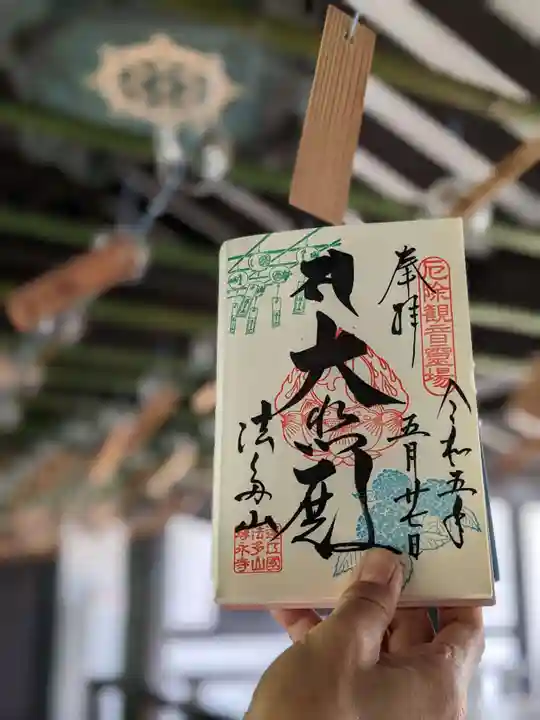 厄除観音靈場
令和五年
五月廿七日
奉拝
大悲殿
法多山
遠江國
法多山
尊永寺